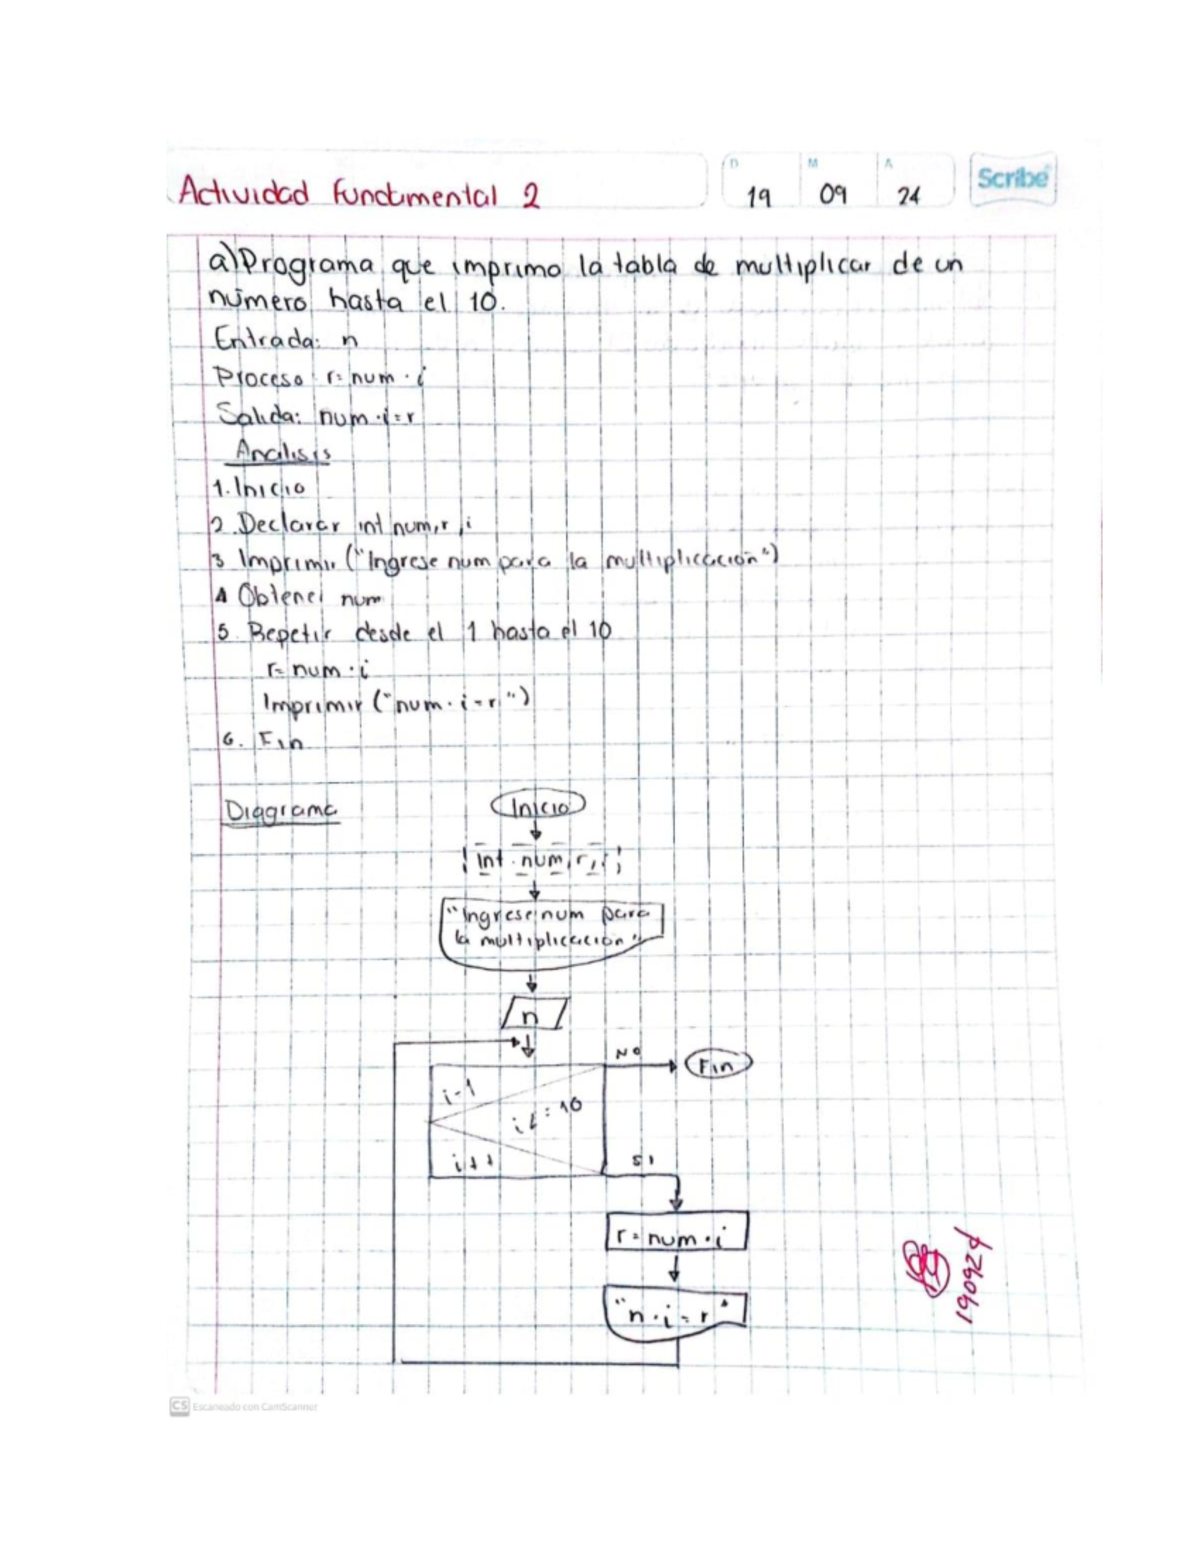 Actividad Fundamental 2
D M A
19 09 24
Scribe
a) Programa que imprima la tabla de multiplicar de un
número hasta el 10.
Entrada: n
Proceso: r= num · i
Salida: num · i = r
Analisis
1. Inicio
2. Declarar int num, r, i
3 Imprimir ("Ingrese num para la multiplicación")
4 Obtener num
5. Repetir desde el 1 hasta el 10
r= num · i
Imprimir ("num · i = r")
6. Fin
Diagrama
Inicio
int num, r, i;
"Ingrese num para
la multiplicación"
n
NO
Fin
i-1
i<=10
i++
SI
r= num · i
"n · i = r"
190924
CS Escaneado con CamScanner